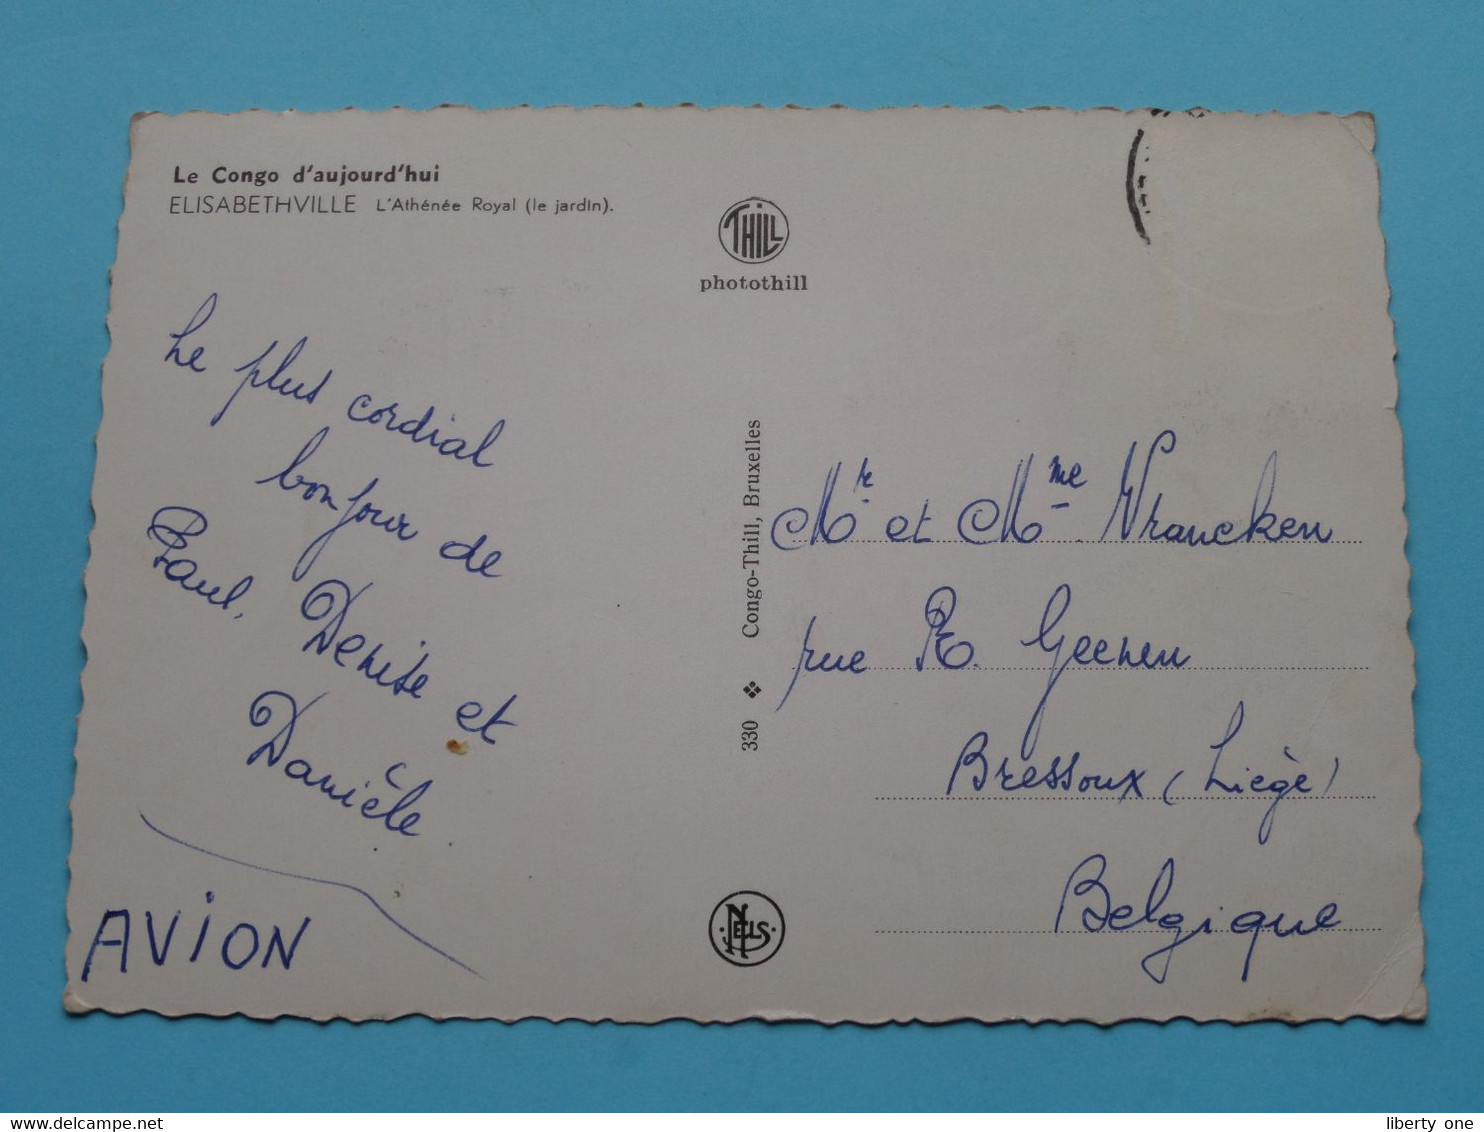 Le Congo d'aujourd'hui
ELISABETHVILLE L'Athénée Royal (le jardin).
THILL
photothill
Le plus cordial
bonjour de
Paul, Denise et
Danièle.
AVION
330 ❖ Congo-Thill, Bruxelles
NELS
Mr et Mme Vrancken
rue R. Geenen
Bressoux (Liège)
Belgique
www.delcampe.net
liberty one